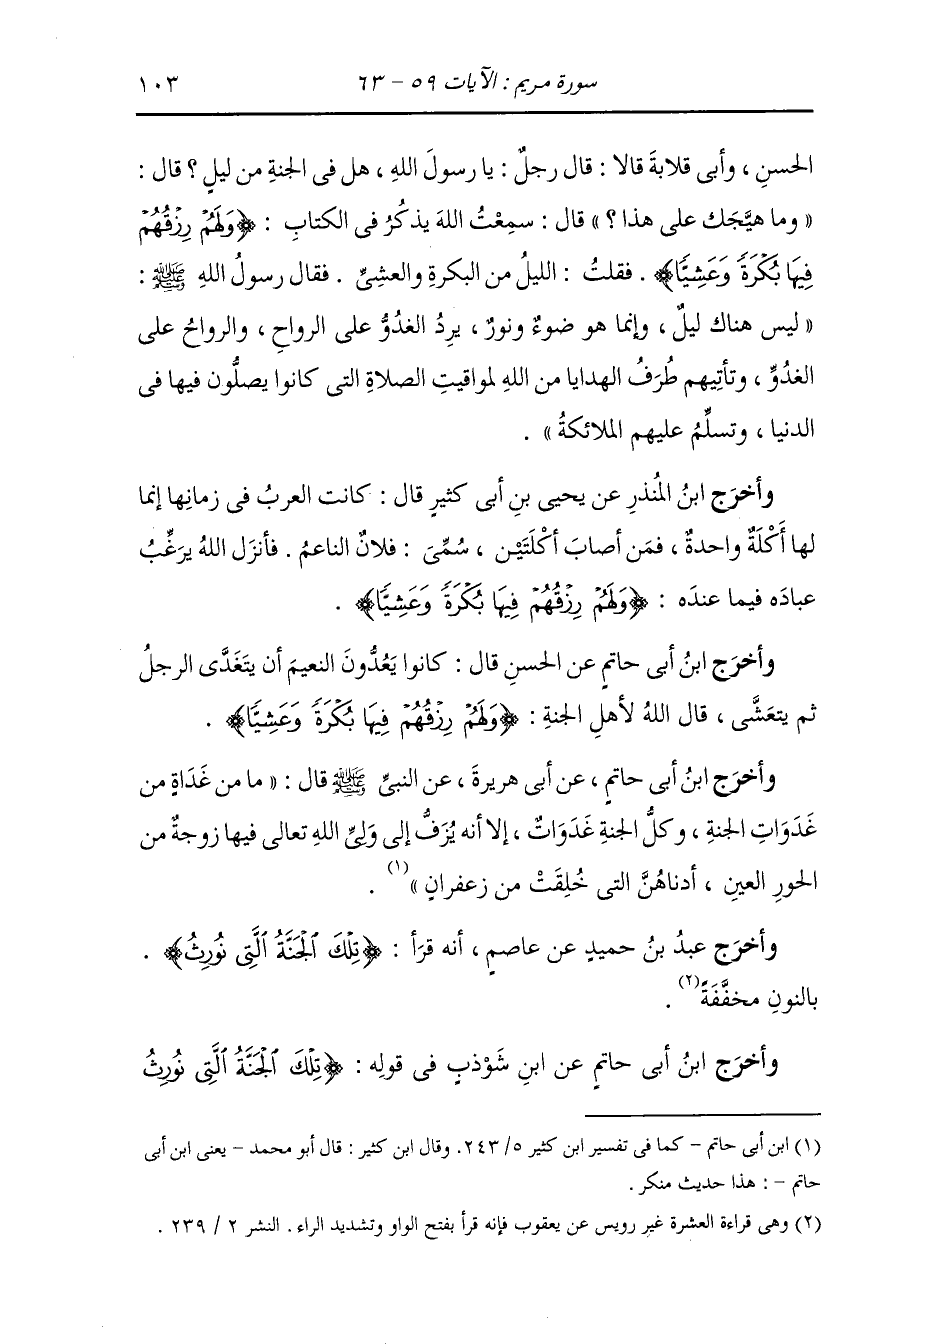 سورة مريم : الآيات ٥٩ - ٦٣ ١٠٣
الحسنِ ، وأبى قلابةَ قالا : قال رجلٌ : يا رسولَ اللهِ ، هل فى الجنةِ من ليلٍ ؟ قال :
« وما هيَّجك على هذا ؟ » قال : سمِعْتُ اللهَ يذكُرُ فى الكتابِ : ﴿وَلَهُمْ رِزْقُهُمْ
فِيهَا بُكْرَةً وَعَشِيًّا﴾ . فقلتُ : الليلُ من البكرةِ والعشىِّ . فقال رسولُ اللهِ ﷺ :
« ليس هناك ليلٌ ، وإنما هو ضوءٌ ونورٌ ، يردُ الغدُوُّ على الرواحِ ، والرواحُ على
الغدُوِّ ، وتأتِيهم طُرَفُ الهدايا من اللهِ لمواقيتِ الصلاةِ التى كانوا يصلُّون فيها فى
الدنيا ، وتسلِّمُ عليهم الملائكةُ » .
وأخرَج ابنُ المُنذرِ عن يحيى بنِ أبى كثيرٍ قال : كانت العربُ فى زمانِها إنما
لها أَكْلَةٌ واحدةٌ ، فمَن أصابَ أكْلَتَيْنِ ، سُمِّىَ : فلانٌ الناعمُ . فأنزَل اللهُ يرَغِّبُ
عبادَه فيما عندَه : ﴿وَلَهُمْ رِزْقُهُمْ فِيهَا بُكْرَةً وَعَشِيًّا﴾ .
وأخرَج ابنُ أبى حاتمٍ عن الحسنِ قال : كانوا يَعُدُّونَ النعيمَ أن يتَغَدَّى الرجلُ
ثم يتعَشَّى ، قال اللهُ لأهلِ الجنةِ : ﴿وَلَهُمْ رِزْقُهُمْ فِيهَا بُكْرَةً وَعَشِيًّا﴾ .
وأخرَج ابنُ أبى حاتمٍ ، عن أبى هريرةَ ، عن النبىِّ ﷺ قال : « ما من غَدَاةٍ من
غَدَوَاتِ الجنةِ ، وكلُّ الجنةِ غَدَوَاتٌ ، إلا أنه يُزَفُّ إلى وَلِىِّ اللهِ تعالى فيها زوجةٌ من
الحورِ العينِ ، أدناهُنَّ التى خُلِقَتْ من زعفرانٍ »(١) .
وأخرَج عبدُ بنُ حميدٍ عن عاصمٍ ، أنه قرَأ : ﴿تِلْكَ ٱلْجَنَّةُ ٱلَّتِى نُورِثُ﴾ .
بالنونِ مخفَّفَةً(٢) .
وأخرَج ابنُ أبى حاتمٍ عن ابنِ شَوْذبٍ فى قولِه : ﴿تِلْكَ ٱلْجَنَّةُ ٱلَّتِى نُورِثُ
(١) ابن أبى حاتم - كما فى تفسير ابن كثير ٥/ ٢٤٣. وقال ابن كثير : قال أبو محمد - يعنى ابن أبى
حاتم - : هذا حديث منكر .
(٢) وهى قراءة العشرة غير رويس عن يعقوب فإنه قرأ بفتح الواو وتشديد الراء . النشر ٢ / ٢٣٩ .